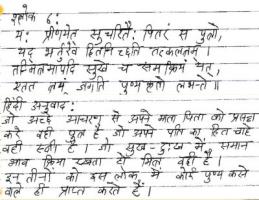 श्लोक 6:
यः प्रीणयेत सुचरितैः पितरं स पुत्रो,
यद् भर्तुरेव हितमिच्छति तत्कलत्रम्।
तन्मित्रमापदि सुखे च समक्रियं यत्,
एतत त्रयं जगति पुण्यकृतो लभन्ते॥
हिंदी अनुवाद:
जो अच्छे आचरण से अपने माता पिता को प्रसन्न
करे वही पुत्र है जो अपने पति का हित चाहे
वही स्त्री है। जो सुख-दुःख में समान
भाव क्रिया रखता हो मित्र वही है।
इन तीनों को इस लोक में कोई पुण्य करने
वाले ही प्राप्त करते हैं।